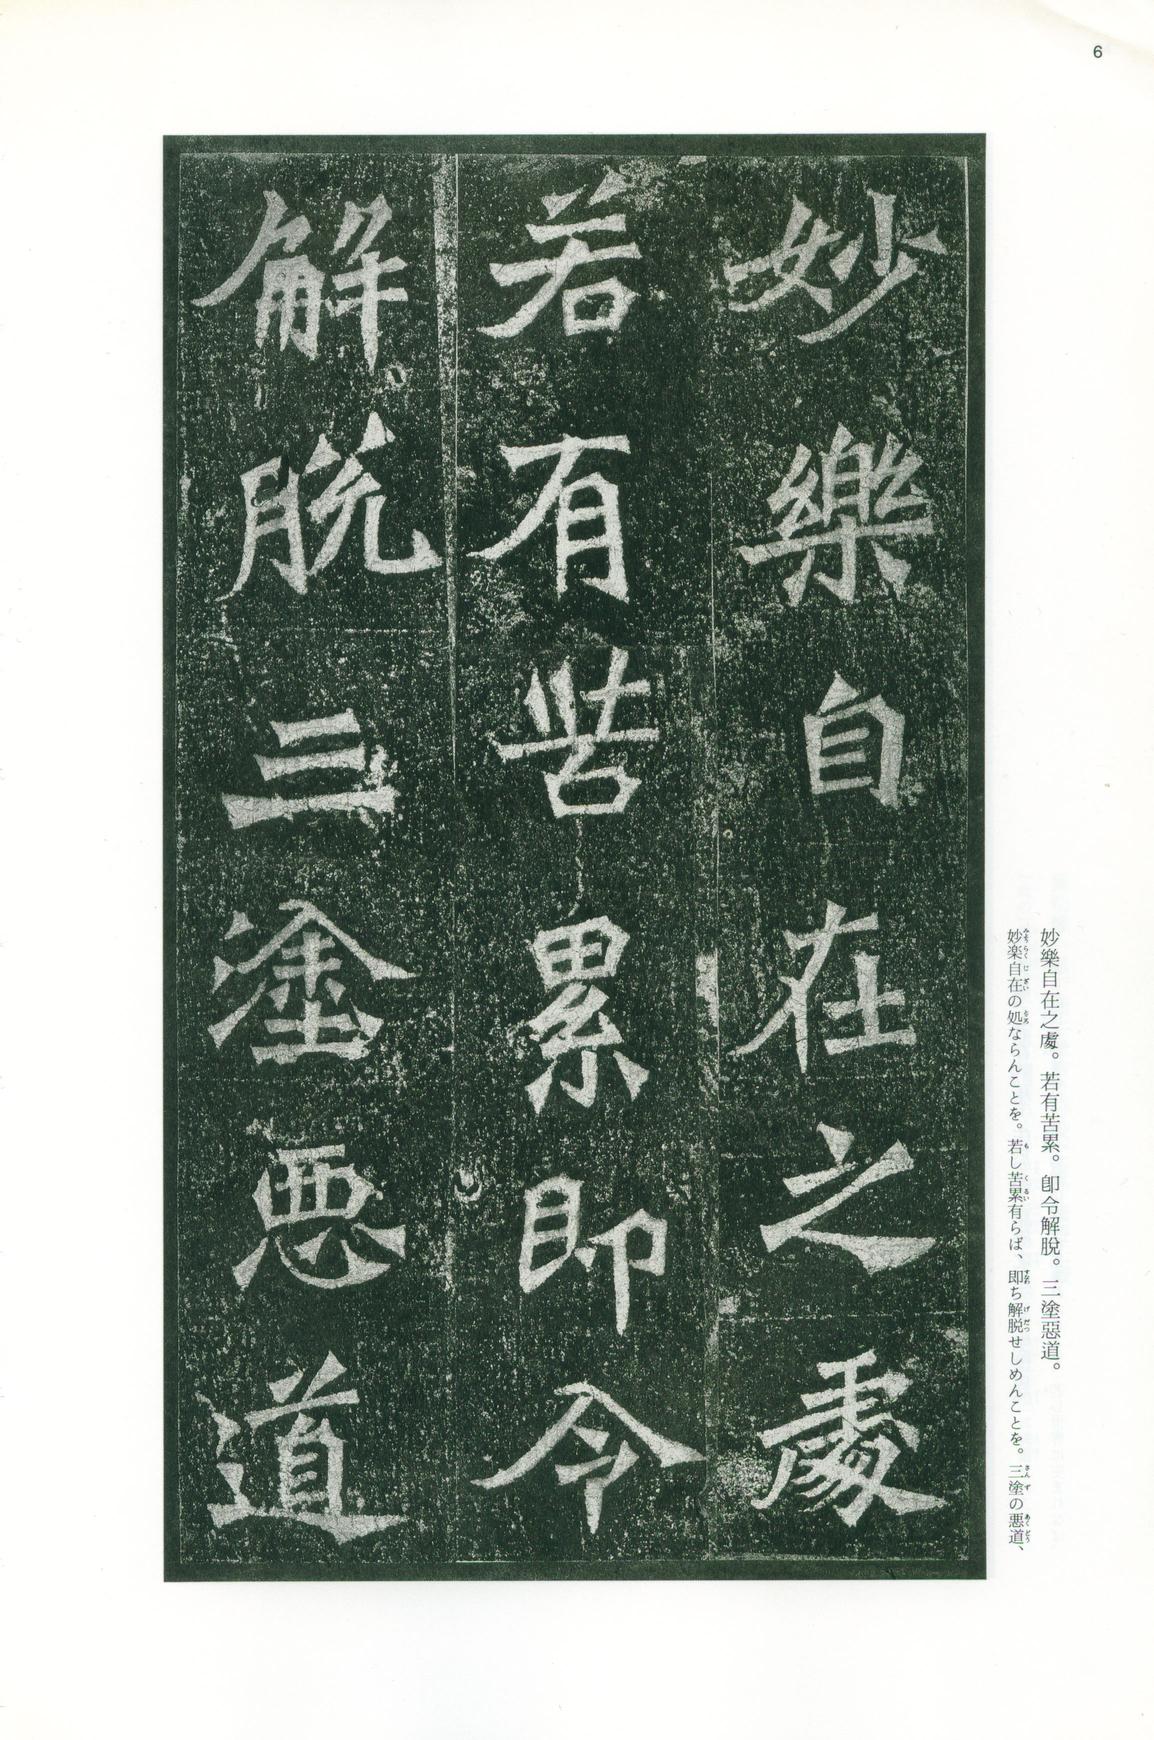 6
妙樂自在之處
若有苦累即令
解脱三塗惡道
妙樂自在之處。若有苦累。卽令解脫。三塗惡道。
妙楽自在の処ならんことを。若し苦累有らば、即ち解脱せしめんことを。三塗の悪道、